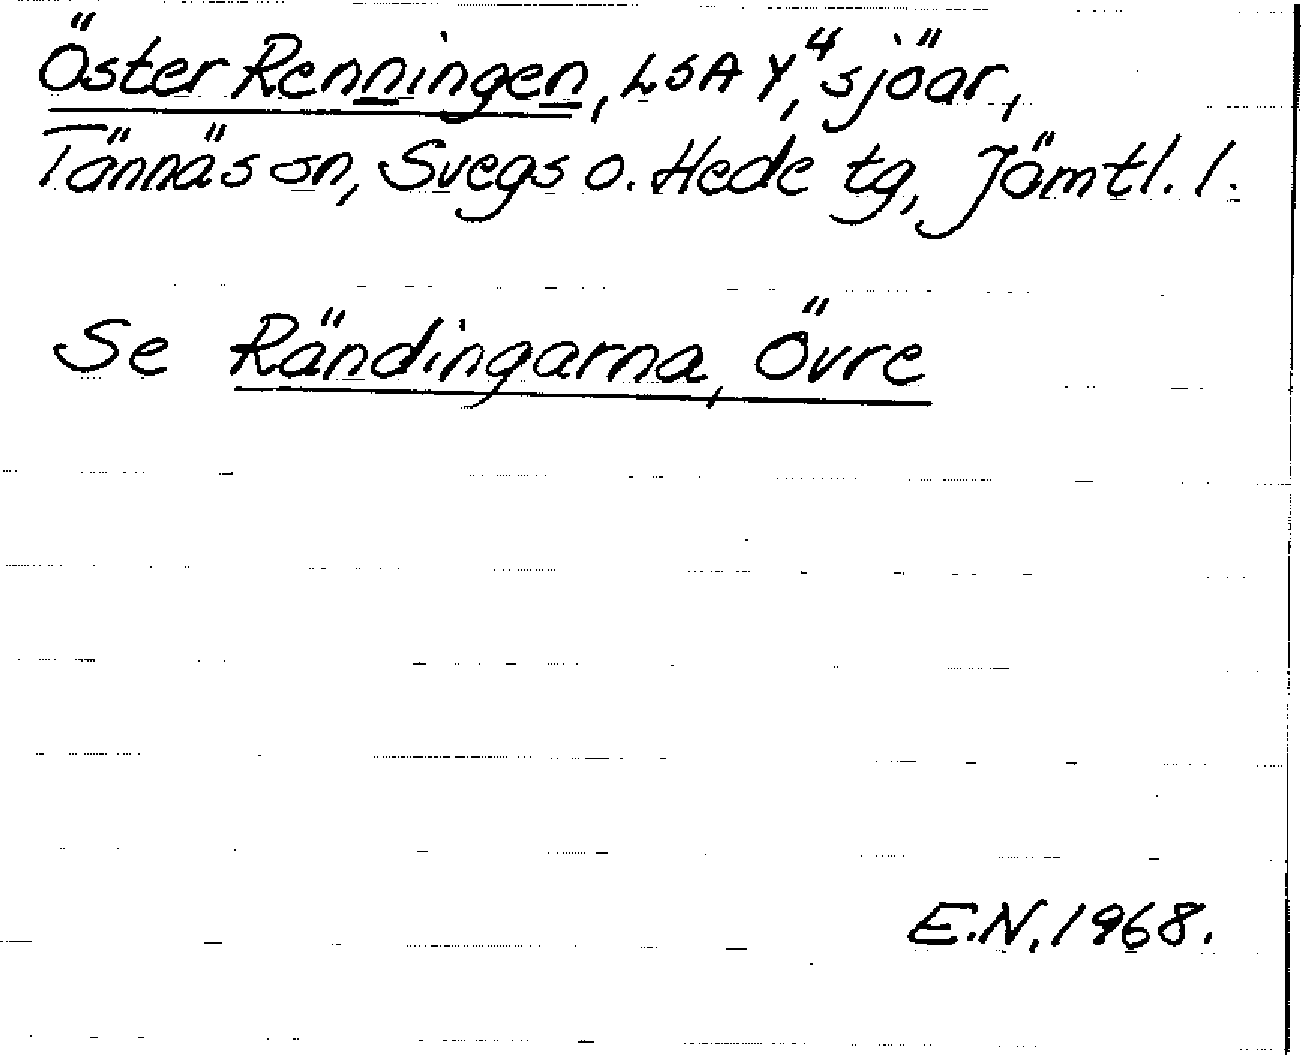 Öster Renningen, LSA Y, 4 sjöar,
Tännäs sn, Svegs o. Hede tg, Jämtl. l.
Se Rändingarna, Övre
E.N. 1968.